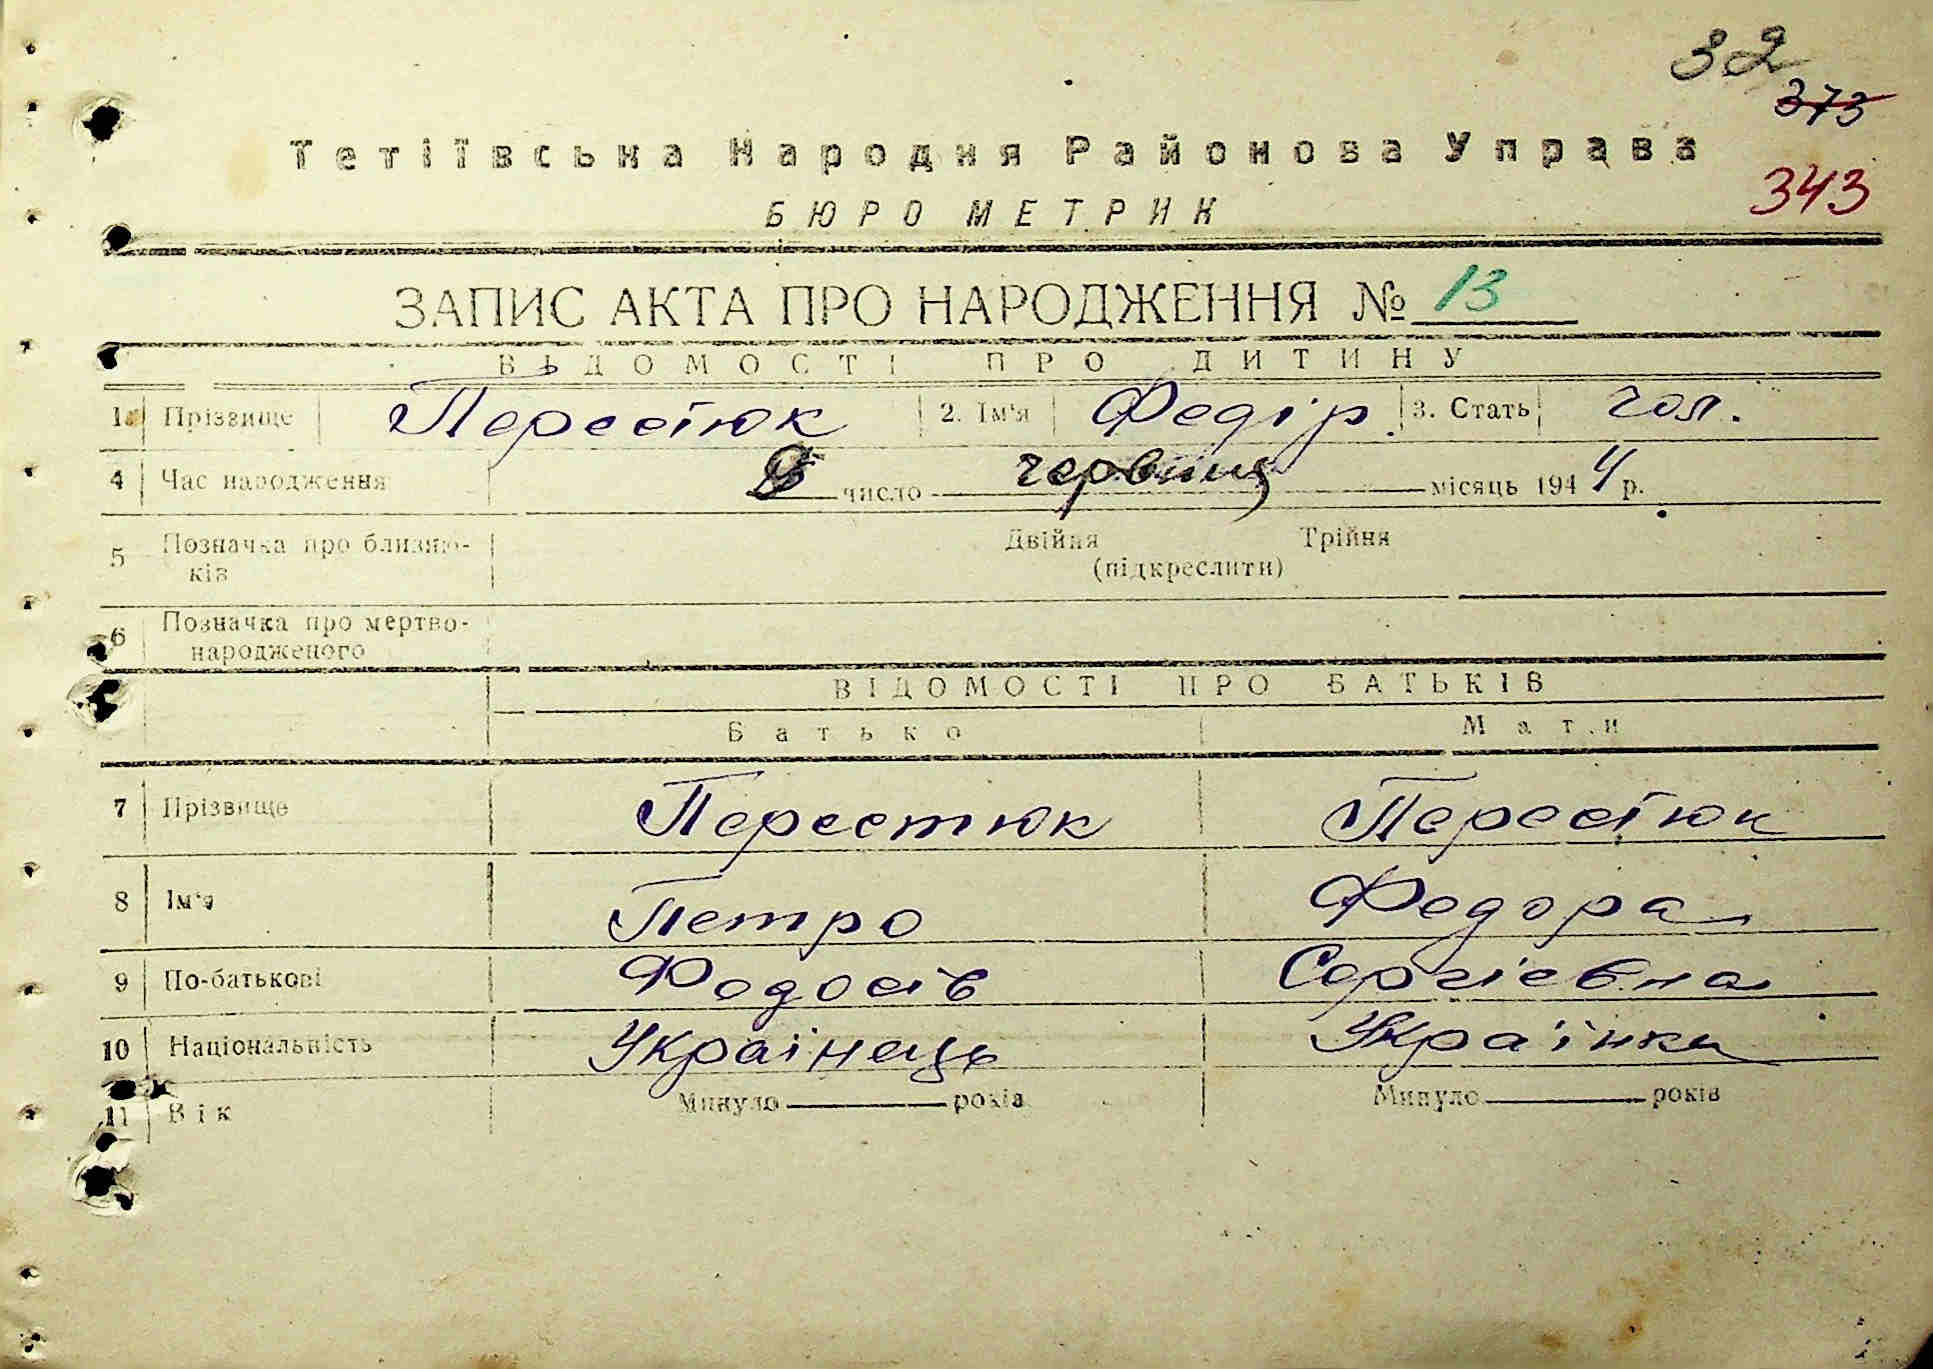 32
373
Тетіївська Народня Районова Управа
343
БЮРО МЕТРИК
ЗАПИС АКТА ПРО НАРОДЖЕННЯ № 13
ВІДОМОСТІ ПРО ДИТИНУ
1. Прізвище Перестюк 2. Ім'я Федір 3. Стать чол.
4 Час народження число червня місяць 1944 р.
5 Позначка про близню- Двійня Трійня
ків (підкреслити)
6 Позначка про мертво-
народженого
ВІДОМОСТІ ПРО БАТЬКІВ
Батько Мати
7 Прізвище Перестюк Перестюк
8 Ім'я Петро Федора
9 По-батькові Федосів Сергієвна
10 Національність Українець Українка
11 Вік Минуло років Минуло років